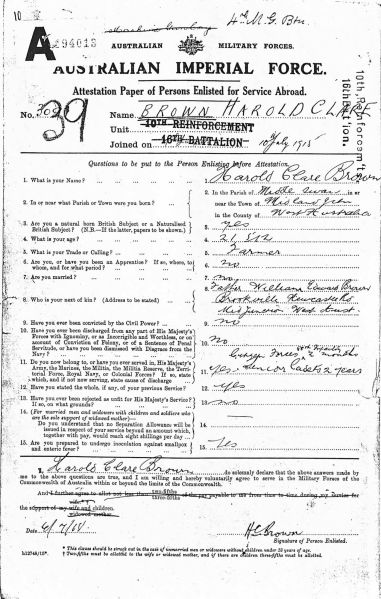 4th M.G. Btn.
A 294013
AUSTRALIAN MILITARY FORCES.
AUSTRALIAN IMPERIAL FORCE.
Attestation Paper of Persons Enlisted for Service Abroad.
No. 39
Name BROWN HAROLD CLARE
Unit 10TH REINFORCEMENT
Joined on 16TH BATTALION 10 July 1915
10th Reinforcem't
16th Battalion.
Questions to be put to the Person Enlisting before Attestation.
1. What is your Name? 1. Harold Clare Brown
2. In or near what Parish or Town were you born? 2. In the Parish of Middle Swan in or
near the Town of Midland Jctn
in the County of West Australia
3. Are you a natural born British Subject or a Naturalised
British Subject? (N.B.—If the latter, papers to be shown). 3. yes
4. What is your age? 4. 21
5. What is your Trade or Calling? 5. Farmer
6. Are you, or have you been an Apprentice? If so, where, to
whom, and for what period? 6. no
7. Are you married? 7. no
8. Who is your next of kin? (Address to be stated) 8. Father William Edward Brown
Brookville Newcastle Rd
Mid Junction West Aust.
9. Have you ever been convicted by the Civil Power? 9. no
10. Have you ever been discharged from any part of His Majesty's
Forces with Ignominy, or as Incorrigible and Worthless, or on
account of Conviction of Felony, or of a Sentence of Penal
Servitude, or have you been dismissed with Disgrace from the
Navy? 10. no
11. Do you now belong to, or have you ever served in, His Majesty's
Army, the Marines, the Militia, the Militia Reserve, the Terri-
torial Force, Royal Navy, or Colonial Forces? If so, state
which, and if not now serving, state cause of discharge 11. Citizen Forces 2 months
yes Senior Cadets 2 years
12. Have you stated the whole, if any, of your previous Service? 12. yes
13. Have you ever been rejected as unfit for His Majesty's Service?
If so, on what grounds? 13. no
14. (For married men and widowers with children and soldiers who
are the sole support of widowed mother)—
Do you understand that no Separation Allowance will be
issued in respect of your service beyond an amount which,
together with pay, would reach eight shillings per day 14.
15. Are you prepared to undergo inoculation against smallpox
and enteric fever? 15. Yes
I, Harold Clare Brown do solemnly declare that the above answers made by
me to the above questions are true, and I am willing and hereby voluntarily agree to serve in the Military Forces of the
Commonwealth of Australia within or beyond the limits of the Commonwealth.
And I further agree to allot not less than two-fifths three-fifths of the pay payable to me from time to time during my service for
the support of my wife wife and children. widowed mother
Date 6/7/15
HC Brown
Signature of Person Enlisted.
* This clause should be struck out in the case of unmarried men or widowers without children under 18 years of age.
† Two-fifths must be allotted to the wife or widowed mother, and if there are children three-fifths must be allotted.